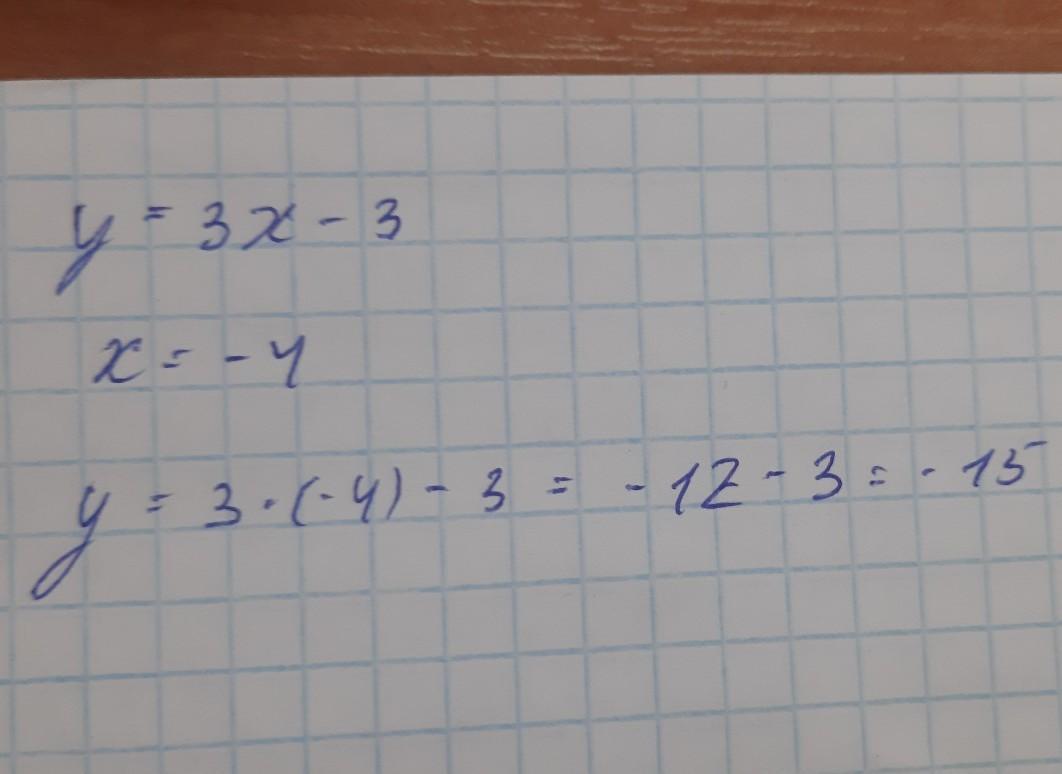 y = 3x - 3
x = -4
y = 3 · (-4) - 3 = -12 - 3 = -15